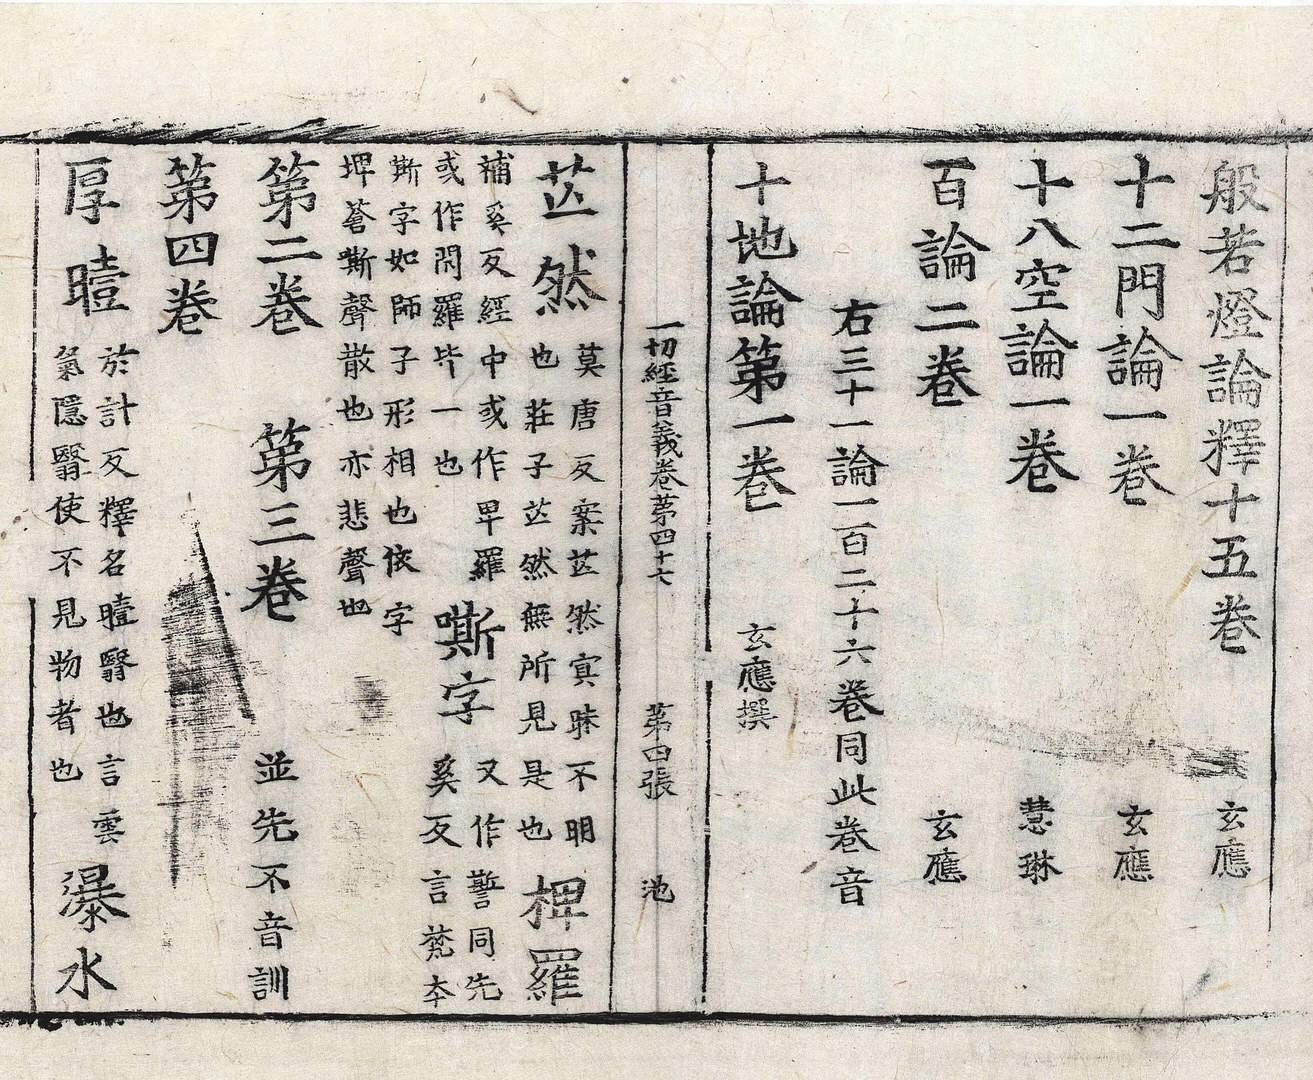 般若燈論釋十五卷 玄應
十二門論一卷 玄應
十八空論一卷 慧琳
百論二卷 玄應
右三十一論一百二十六卷同此卷音
十地論第一卷 玄應撰
一切經音義卷第四十六 第四張 池
芒然 莫唐反案芒然冥昧不明
也莊子芒然無所見是也 椑羅
補奚反經中或作卑羅
或作閇羅一也 嘶字 又作同先
奚反言梵本
嘶字如師子形相也依字
埤蒼嘶聲散也亦悲聲也
第二卷 第三卷 並先不音訓
第四卷
厚曀 於計反釋名曀翳也言雲
氣隱翳使不見物者也 瀑水